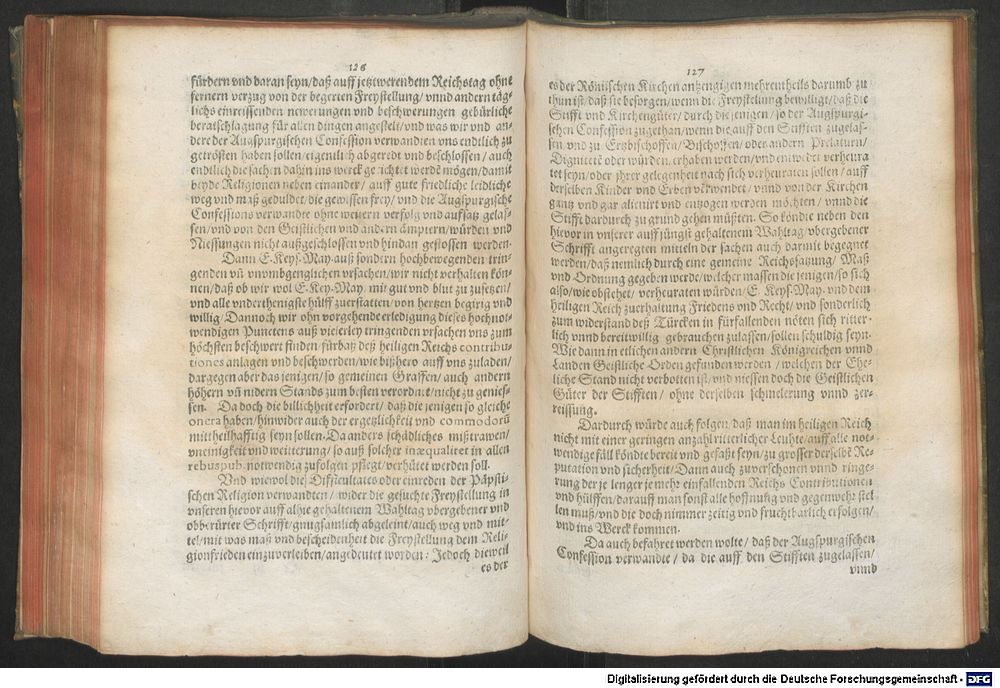 126
fürdern vnd daran seyn/daß auff jetztwerendem Reichstag ohne
fernern verzug von der begerten Freystellung/vnnd andern täg-
lichs einreissenden newerungen vnd beschwerungen gebürliche
beratschlagung für allen dingen angestelt/vnd was wir vnd an-
dere der Augspurgischen Confession verwandten vns endtlich zu
getrösten haben sollen/eigentlich abgeredt vnd beschlossen/auch
endtlich die sachen dahin ins werck gerichtet werdē mögen/damit
beyde Religionen neben einander/auff gute friedliche leidliche
weg vnd maß geduldet/die gewissen frey/vnd die Augspurgische
Confessions verwandte ohne weitern verfolg vnd auffsatz gelas-
sen/vnd von den Geistlichen vnd andern ämptern/würden vnd
Niessungen nicht außgeschlossen vnd hindan gestossen werden.
Dann E. Keys. May. auß sondern hochbewegenden trin-
genden vñ vnvmbgenglichen vrsachen/wir nicht verhalten kön-
nen/daß ob wir wol E. Key. May. mit gut vnd blut zu zusetzen/
vnd alle vnderthenigste hülff zuerstatten/von hertzen begirig vnd
willig/Dannoch wir ohn vorgehende erledigung dieses hochnot-
wendigen Punctens auß vielerley tringenden vrsachen vns zum
höchsten beschwert finden/fürbaß deß heiligen Reichs contribu-
tiones anlagen vnd beschwerden/wie bißhero auff vns zuladen/
dargegen aber das jenigen/so gemeinen Graffen/auch andern
höhern vñ nidern Stands zum besten verordnet/nicht zu genies-
sen. Da doch die billichheit erfordert/daß die jenigen so gleiche
onera haben/hinwider auch der ergetzlichkeit vnd commodorũ
mittheilhafftig seyn sollen. Da anders schädliches mißtrawen/
vneinigkeit vnd weitterung/so auß solcher inæqualitet in allen
rebuspub. notwendig zufolgen pfleget/verhütet werden soll.
Vnd wiewol die Difficultates oder einreden der Päpsti-
schen Religion verwandten/wider die gesuchte Freystellung in
vnseren hievor auff alhie gehaltenem Wahltag vbergebener vnd
obberürter Schrifft/gnugsamlich abgeleint/auch weg vnd mit-
tel/mit was maß vnd bescheidenheit die Freystellung dem Reli-
gionfrieden einzuverleiben/angedeutet worden: Jedoch dieweil
es der
127
es der Römischen Kirchen anhengigen mehrentheils darumb zu
thun ist/daß sie besorgen/wenn die Freystellung bewilligt/daß die
Stifft vnd Kirchengüter/durch die jenigen/so der Augspurgi-
schen Confession zugethan/wenn die auff den Stifften zugelas-
sen vnd zu Ertzbischoffen/Bischoffen/oder andern Prelaturn/
Dignitete oder würden/erhaben werden/vnd entwider verheura-
tet seyn/oder jhrer gelegenheit nach sich verheuraten sollen/auff
derselben Kinder vnd Erben verwendet/vnnd von der Kirchen
gantz vnd gar alienirt vnd entzogen werden möchten/vnnd die
Stifft dardurch zu grund gehen müßten. So köndte neben den
hievor in vnserer auff jüngst gehaltenem Wahltag/vbergebener
Schrifft angeregten mitteln der sachen auch darmit begegnet
werden/daß nemlich durch eine gemeine Reichssatzung/Maß
vnd Ordnung gegeben werde/welcher massen die jenigen/so sich
also/wie obstehet/verheuraten würden/E. Keys. May. vnd dem
heiligen Reich zuerhaltung Friedens vnd Recht/vnd sonderlich
zum widerstand deß Türcken in fürfallenden nöten sich ritter-
lich vnnd bereitwillig gebrauchen zulassen/sollen schuldig seyn.
Wie dann in etlichen andern Christlichen Königreichen vnnd
Landen Geistliche Orden gefunden werden/welchen der Ehe-
liche Stand nicht verbotten ist/vnd niessen doch die Geistlichen
Güter der Stifften/ohne derselben schmelerung vnnd zer-
reissung.
Dardurch würde auch folgen/daß man im heiligen Reich
nicht mit einer geringen anzahl ritterlicher Leuhte/auff alle not-
wendige fäll köndte bereit vnd gefaßt seyn/zu grosser derselbē Re-
putation vnd sicherheit/Dann auch zuverschonen vnnd ringe-
rung der je lenger je mehr einfallenden Reichs Contributionen
vnd hülffen/darauff man sonst alle hoffnung vnd gegenwehr stel-
len muß/vnd die doch nimmer zeitig vnd fruchtbarlich erfolgen/
vnd ins Werck kommen.
Da auch befahret werden wolte/daß der Augspurgischen
Confession verwandte/da die auff den Stifften zugelassen/
vnnd
Digitalisierung gefördert durch die Deutsche Forschungsgemeinschaft - DFG